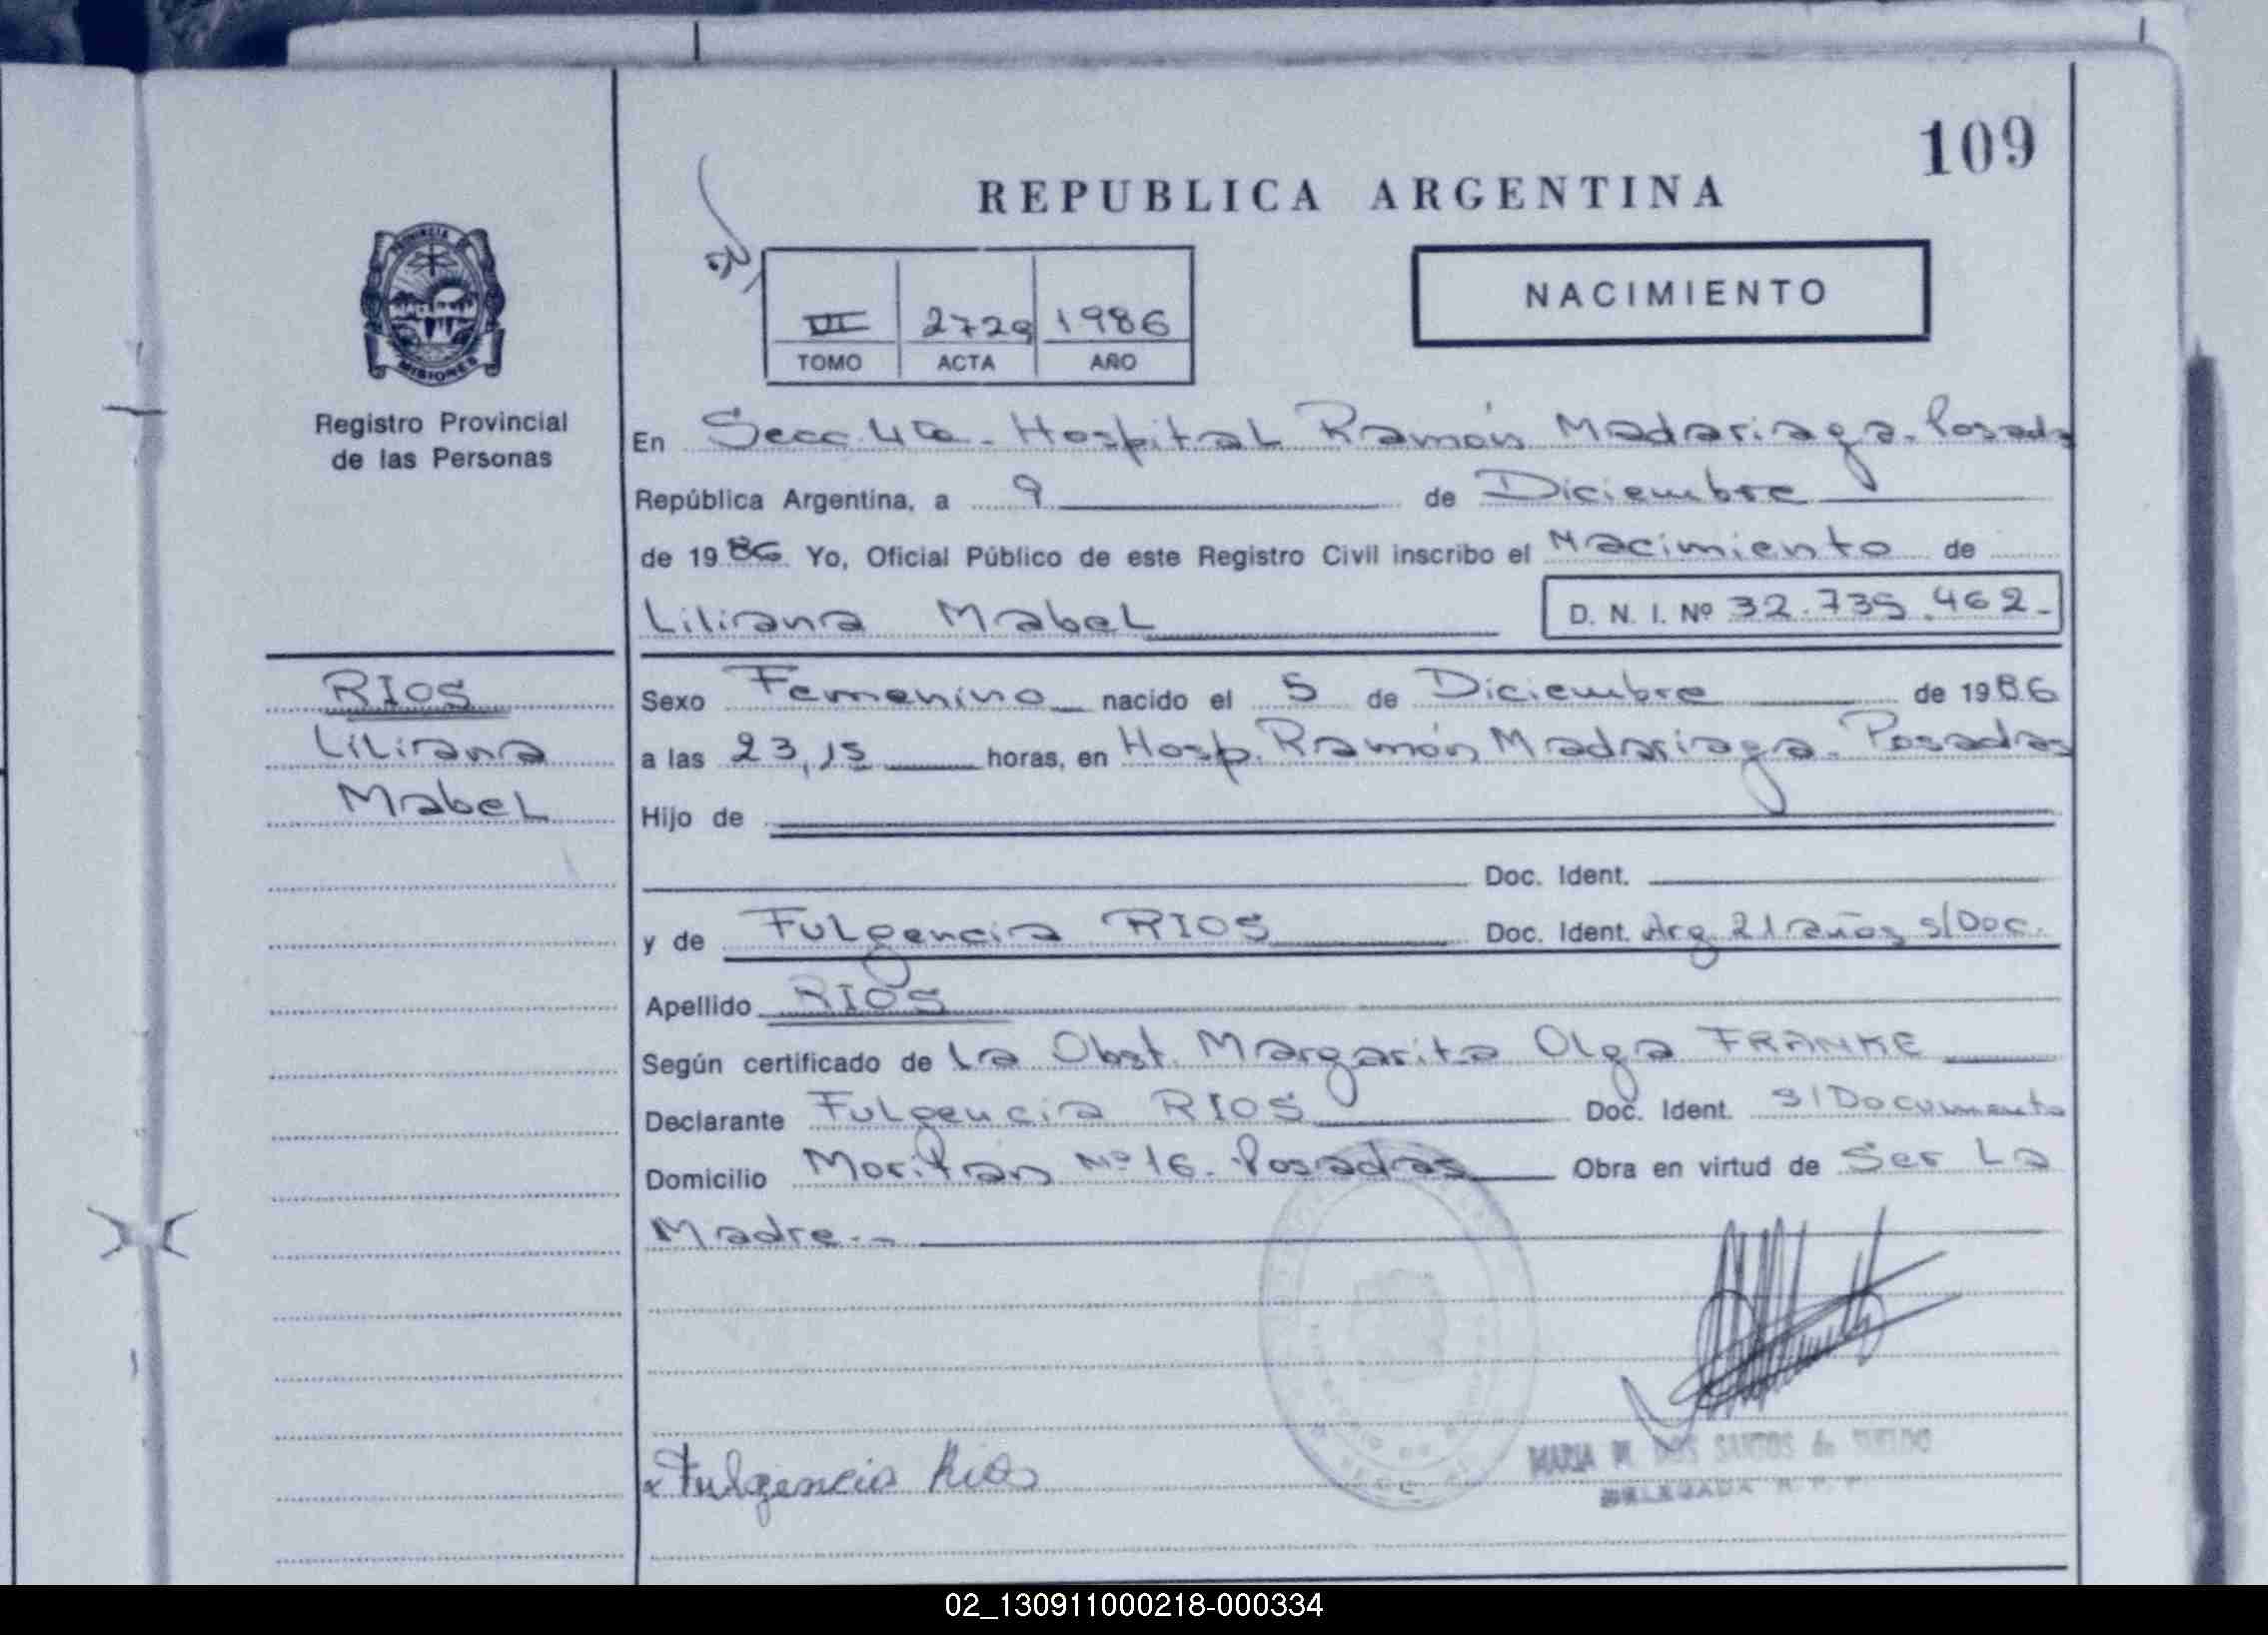 109
REPUBLICA ARGENTINA
NACIMIENTO
PROVINCIA DE
MISIONES
Registro Provincial
de las Personas
2729 1986
TOMO ACTA AÑO
En Secc. 4ta - Hospital Ramón Madariaga. Posadas
República Argentina, a 9 de Diciembre
de 1986 Yo, Oficial Público de este Registro Civil inscribo el Nacimiento de
Liliana Mabel D. N. I. Nº 32.735.462-
RIOS
Liliana
Mabel
Sexo Femenino nacido el 5 de Diciembre de 1986
a las 23,15 horas, en Hosp. Ramón Madariaga. Posadas
Hijo de
Doc. Ident.
y de Fulgencia RIOS Doc. Ident. Arg 21 años s/Doc.
Apellido RIOS
Según certificado de La Obst. Margarita Olga FRANKE
Declarante Fulgencia RIOS Doc. Ident. S/Documento
Domicilio Nº 16. Posadas Obra en virtud de Ser La
Madre.-
Fulgencia Rios
MARIA M. DOS SANTOS de
DELEGADA R. P. P.
02_130911000218-000334